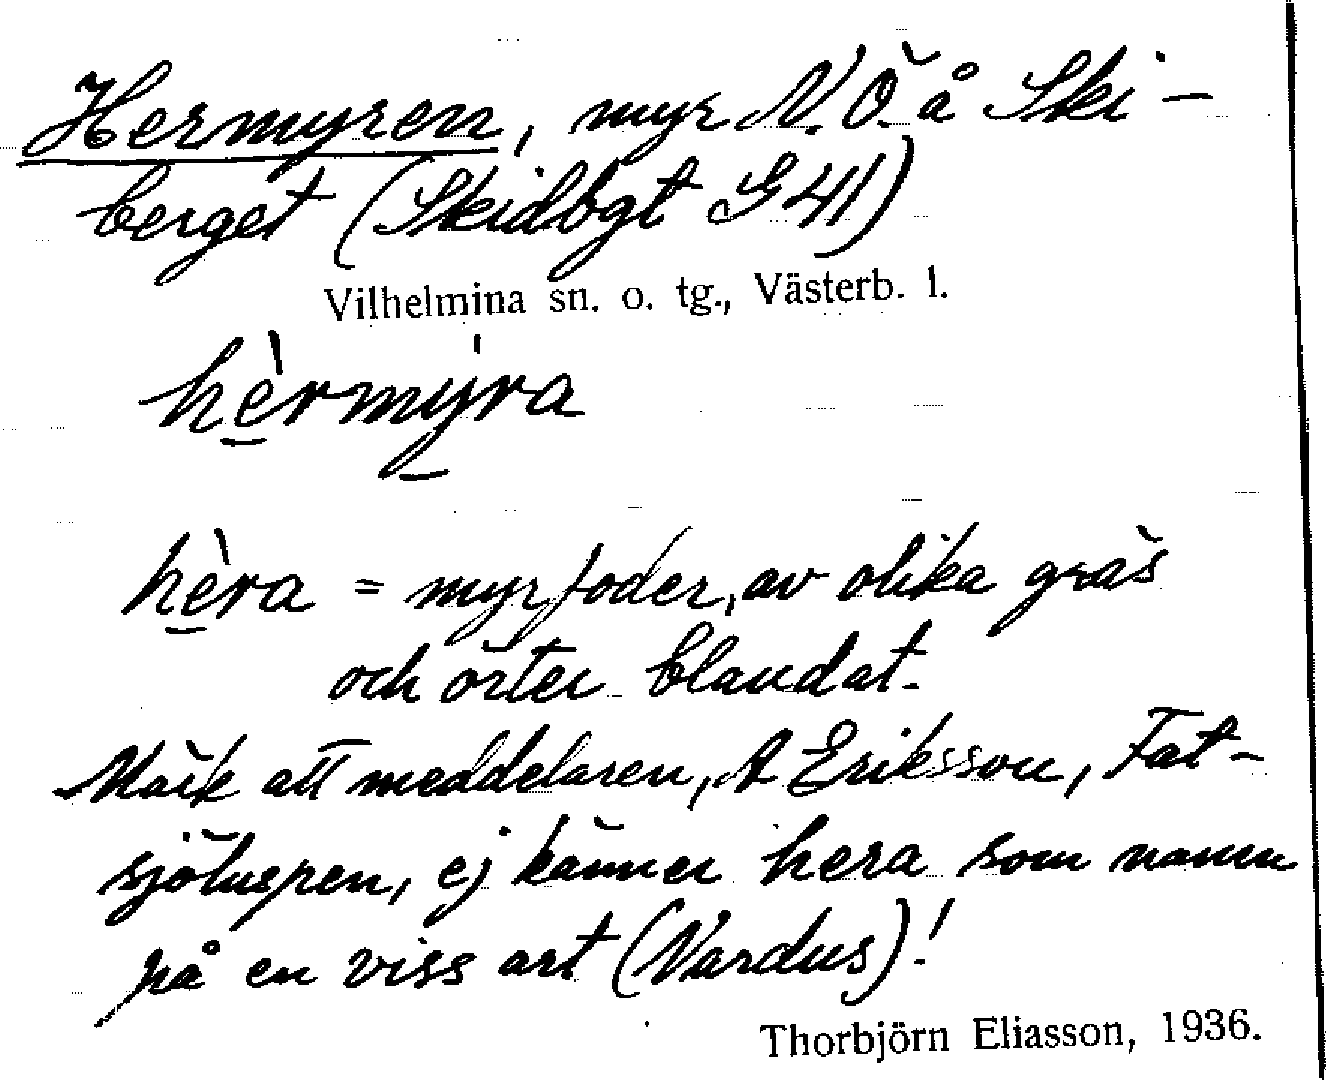 Hermyren, myr N.Ö. å Ski-
berget (Skidbgt G 41)
Vilhelmina sn. o. tg., Västerb. l.
hèrmýra
hèra = myrfoder, av olika gräs
och örter blandat.
Märk att meddelaren, A Eriksson, Fat-
sjöluspen, ej känner hera som namn
på en viss art (Nardus)!
Thorbjörn Eliasson, 1936.